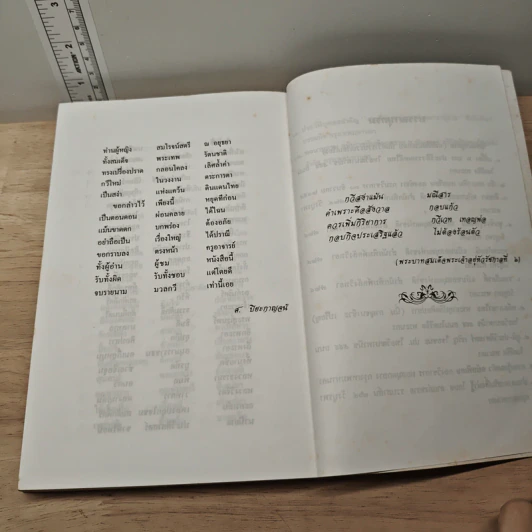 ท่านผู้หญิง สมโรจน์สตรี ณ อยุธยา
ทั้งสมเด็จ พระเทพ รัตนชาติ
ทรงเปรื่องปราด กลอนโคลง เลิศล้ำค่า
กวีใหม่ ในวงงาน ตะการตา
เป็นสง่า แห่งแคว้น ดินแดนไทย
ขอกล่าวไว้ เพียงนี้ หยุดที่ก่อน
เป็นตอนตอน ผ่อนคลาย ได้ไฉน
แม้นขาดตก บกพร่อง ต้องอภัย
อย่าถือเป็น เรื่องใหญ่ ได้ปรานี
ขอกราบลง ตรงหน้า ครูอาจารย์
ทั้งผู้อ่าน ผู้ชม หนังสือนี้
รับทั้งผิด รับทั้งชอบ แต่โดยดี
จบรายนาม มวลกวี เท่านี้เอย
ส. ปิยะกาญจน์
กวีสง่าแม้น มณีสาร
ค่าเพราะคือสังวาล กอบแก้ว
ควรเพิ่มกิริยาการ
กอบกิจประเสริฐแล้ว ไป่ต้องร้อนตัว
(พระบาทสมเด็จพระเจ้าอยู่หัวรัชกาลที่ ๖)